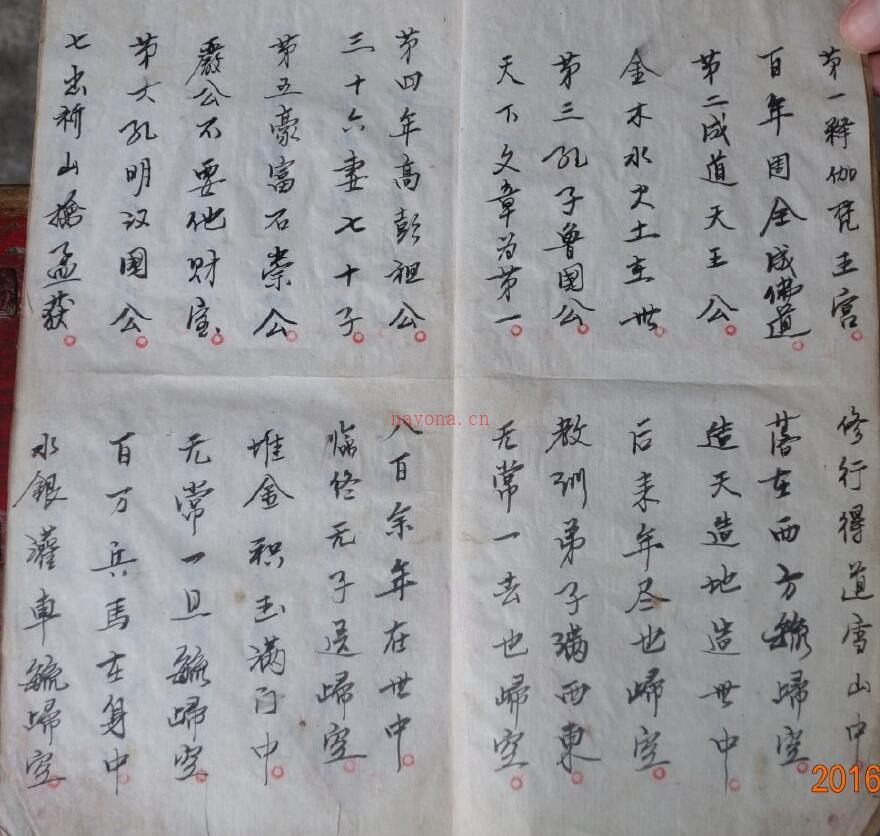 第一释伽梵王宫 修行得道雪山中
百年周全成佛道 落在西方毓歸空
第二成道天王公 造天造地造世中
金木水火土在世 后来年尽也歸空
第三孔子鲁国公 教训弟子满西東
天下文章为第一 无常一去也歸空
第四年高彭祖公 八百余年在世中
三十六妻七十子 临终无子送歸空
第五豪富石崇公 堆金积玉满门中
嚴公不要他财宝 无常一旦毓歸空
第六孔明汉国公 百万兵马在身中
七出祈山擒孟获 水銀灌車毓歸空
nayona.cn
2016